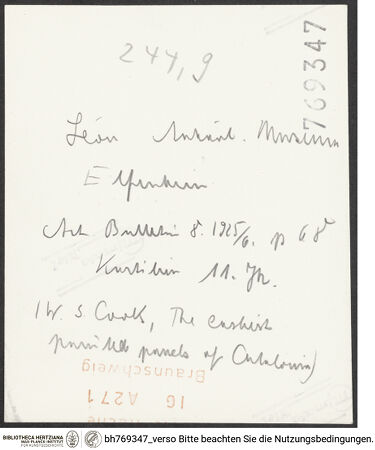 244,9
769347
Léon Archäol. Museum
Elfenbein
Art Bulletin 8. 1925/6. p 68
11. Jh.
(W. S. Cook, The earliest
painted panels of Catalonia)
Braunschweig
16 A271
BIBLIOTHECA HERTZIANA
MAX-PLANCK-INSTITUT
FÜR KUNSTGESCHICHTE
bh769347_verso Bitte beachten Sie die Nutzungsbedingungen.